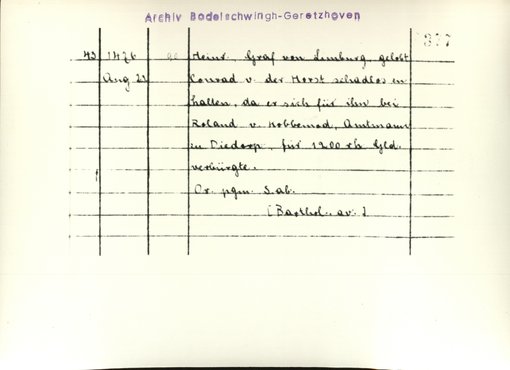 Archiv Bodelschwingh-Geretzhoven
377
43 1426 Heinr. Graf von Limburg gelobt
Aug. 21 Conrad v. der Horst schadlos en
halten, da er sich für ihn bei
Roland v. Amtmann
zu Diedorp, für 1200 rh. Gld.
verbürgte.
Or. pgm. S. ab.
(Barthol. av.)